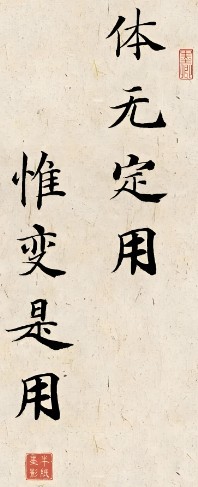 体无定用
惟变是用